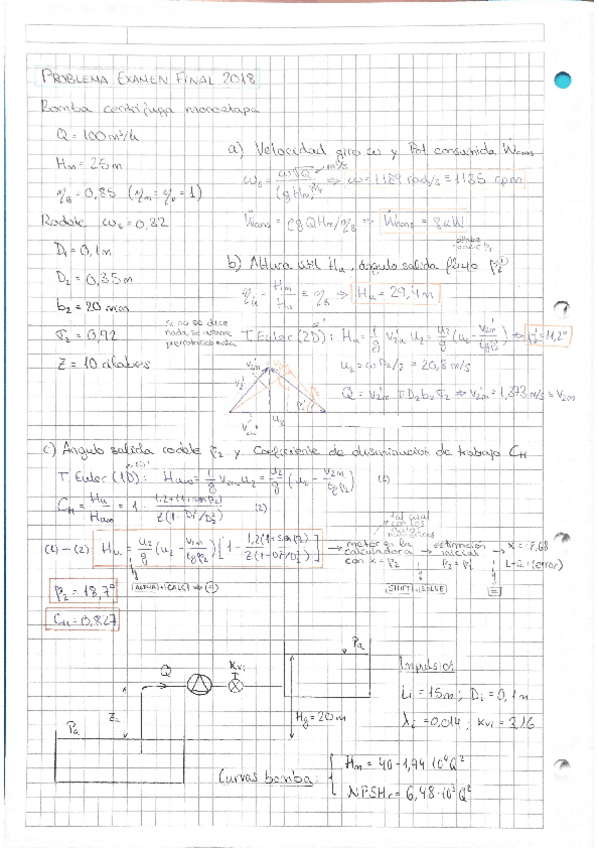 PROBLEMA EXAMEN FINAL 2018
Bomba centrífuga monoetapa
Q = 100 m³/h
Hm = 25 m
ηB = 0,85 (ηm = ηv = 1)
Rodete ωs = 0,82
D₁ = 0,1 m
D₂ = 0,35 m
b₂ = 20 mm
τ₂ = 0,92
Z = 10 álabes
a) Velocidad giro ω y Pot consumida Ẇcons
ωs = ω√Q / (gHm)^3/4 m³/s ⇒ ω = 1189 rad/s = 1135 rpm
Ẇcons = ρgQHm/ηB ⇒ Ẇcons = 8 kW
b) Altura útil Hu, ángulo salida flujo β₂'
ηh = Hm/Hu = ηB ⇒ Hu = 29,4 m
si no se dice nada, se asume
T. Euler (2D): Hu = 1/g v₂u' u₂ = u₂/g (u₂ - v₂m'/tgβ₂') ⇒ β₂' = 11,2°
u₂ = ω D₂/2 = 20,8 m/s
Q = v₂m' π D₂ b₂ τ₂ ⇒ v₂m' = 1,373 m/s = v₂m
u₂
c) Ángulo salida rodete β₂ y Coeficiente de disminución de trabajo CH
T. Euler (1D): Hu∞ = 1/g v₂u u₂ = u₂/g (u₂ - v₂m/tgβ₂) (1)
CH = Hu/Hu∞ = 1 - 1,2(1+senβ₂) / Z(1-D₁²/D₂²) (2)
(1)-(2) Hu = u₂/g (u₂ - v₂m/tgβ₂) [1 - 1,2(1+senβ₂)/Z(1-D₁²/D₂²)] → meter en la calculadora con x = β₂ → estimación inicial β₂ = β₂' → x = 18,68
L-R = (error)
ALPHA + CALC → =
SHIFT + SOLVE
=
β₂ = 18,7°
CH = 0,827
Q
Kvi
Pa
Za
Pa
Hg = 20 m
Impulsión
Li = 15 m; Di = 0,1 m
λi = 0,014; Kvi = 3,16
Curvas bomba:
Hm = 40 - 1,94·10⁴Q²
NPSHr = 6,48·10³Q²